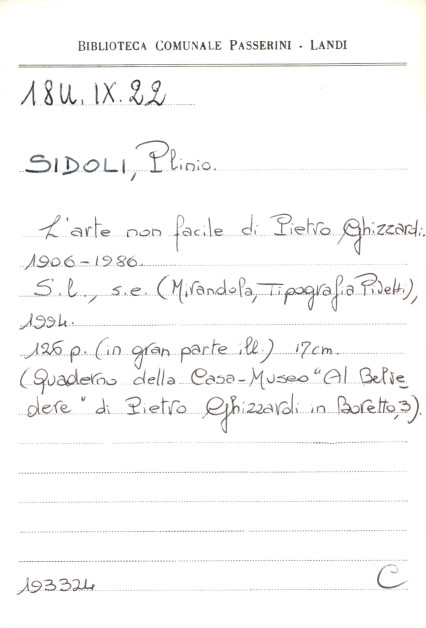 BIBLIOTECA COMUNALE PASSERINI - LANDI
18U.IX.22
SIDOLI, Plinio.
L'arte non facile di Pietro Ghizzardi.
1906-1986.
S.l., s.e. (Mirandola, Tipografia Pivetti),
1994.
126 p. (in gran parte ill.) 17cm.
(Quaderno della Casa-Museo "Al Belve
dere" di Pietro Ghizzardi in Boretto, 3).
193324
C